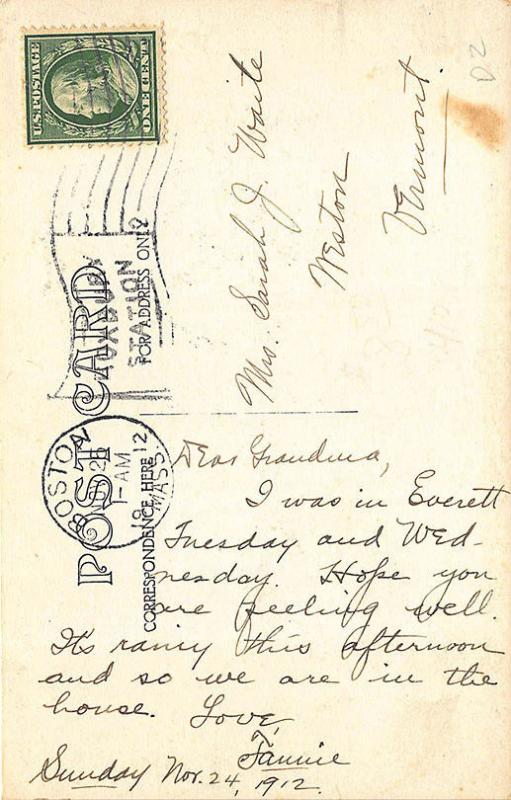 U.S. POSTAGE
ONE CENT
POST CARD
FOR ADDRESS ONLY
CORRESPONDENCE HERE
STATION
BOSTON
1-AM
1912
MASS
D2
Mrs. Sarah J. Waite
Weston
Vermont.
Dear Grandma,
I was in Everett
Tuesday and Wed-
nesday. Hope you
are feeling well.
It's rainy this afternoon
and so we are in the
house. Love,
Fannie
Sunday Nov. 24, 1912.